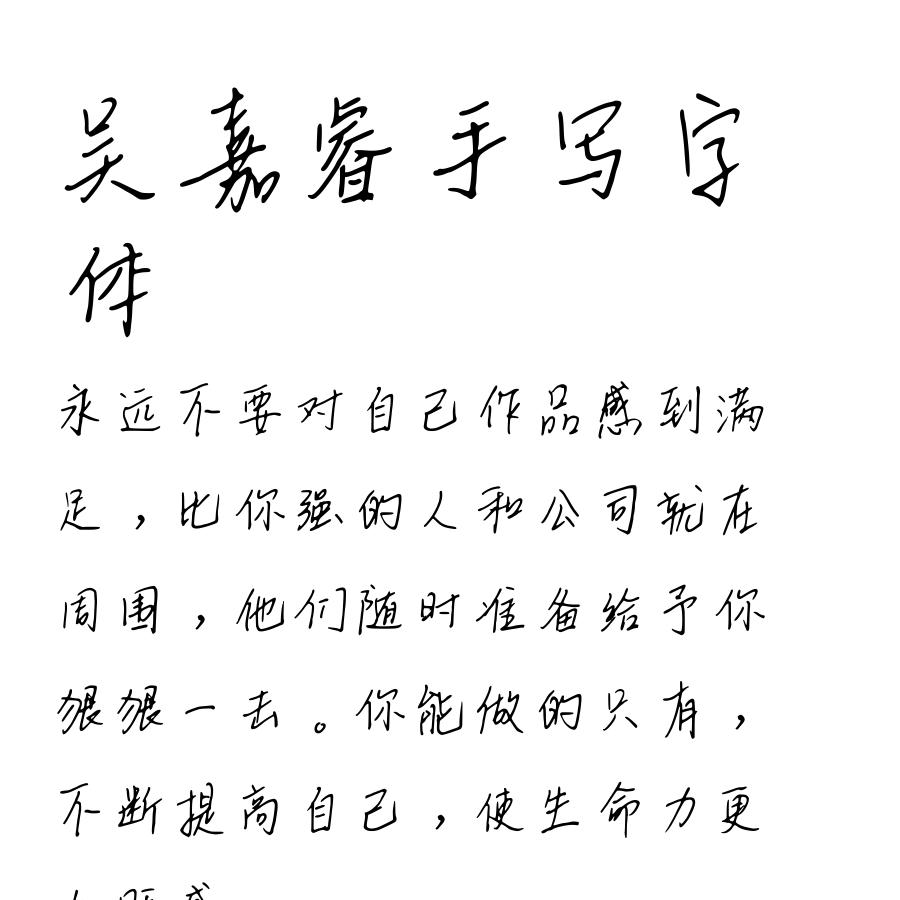 吴嘉睿手写字
体
永远不要对自己作品感到满
足，比你强的人和公司就在
周围，他们随时准备给予你
狠狠一击。你能做的只有，
不断提高自己，使生命力更